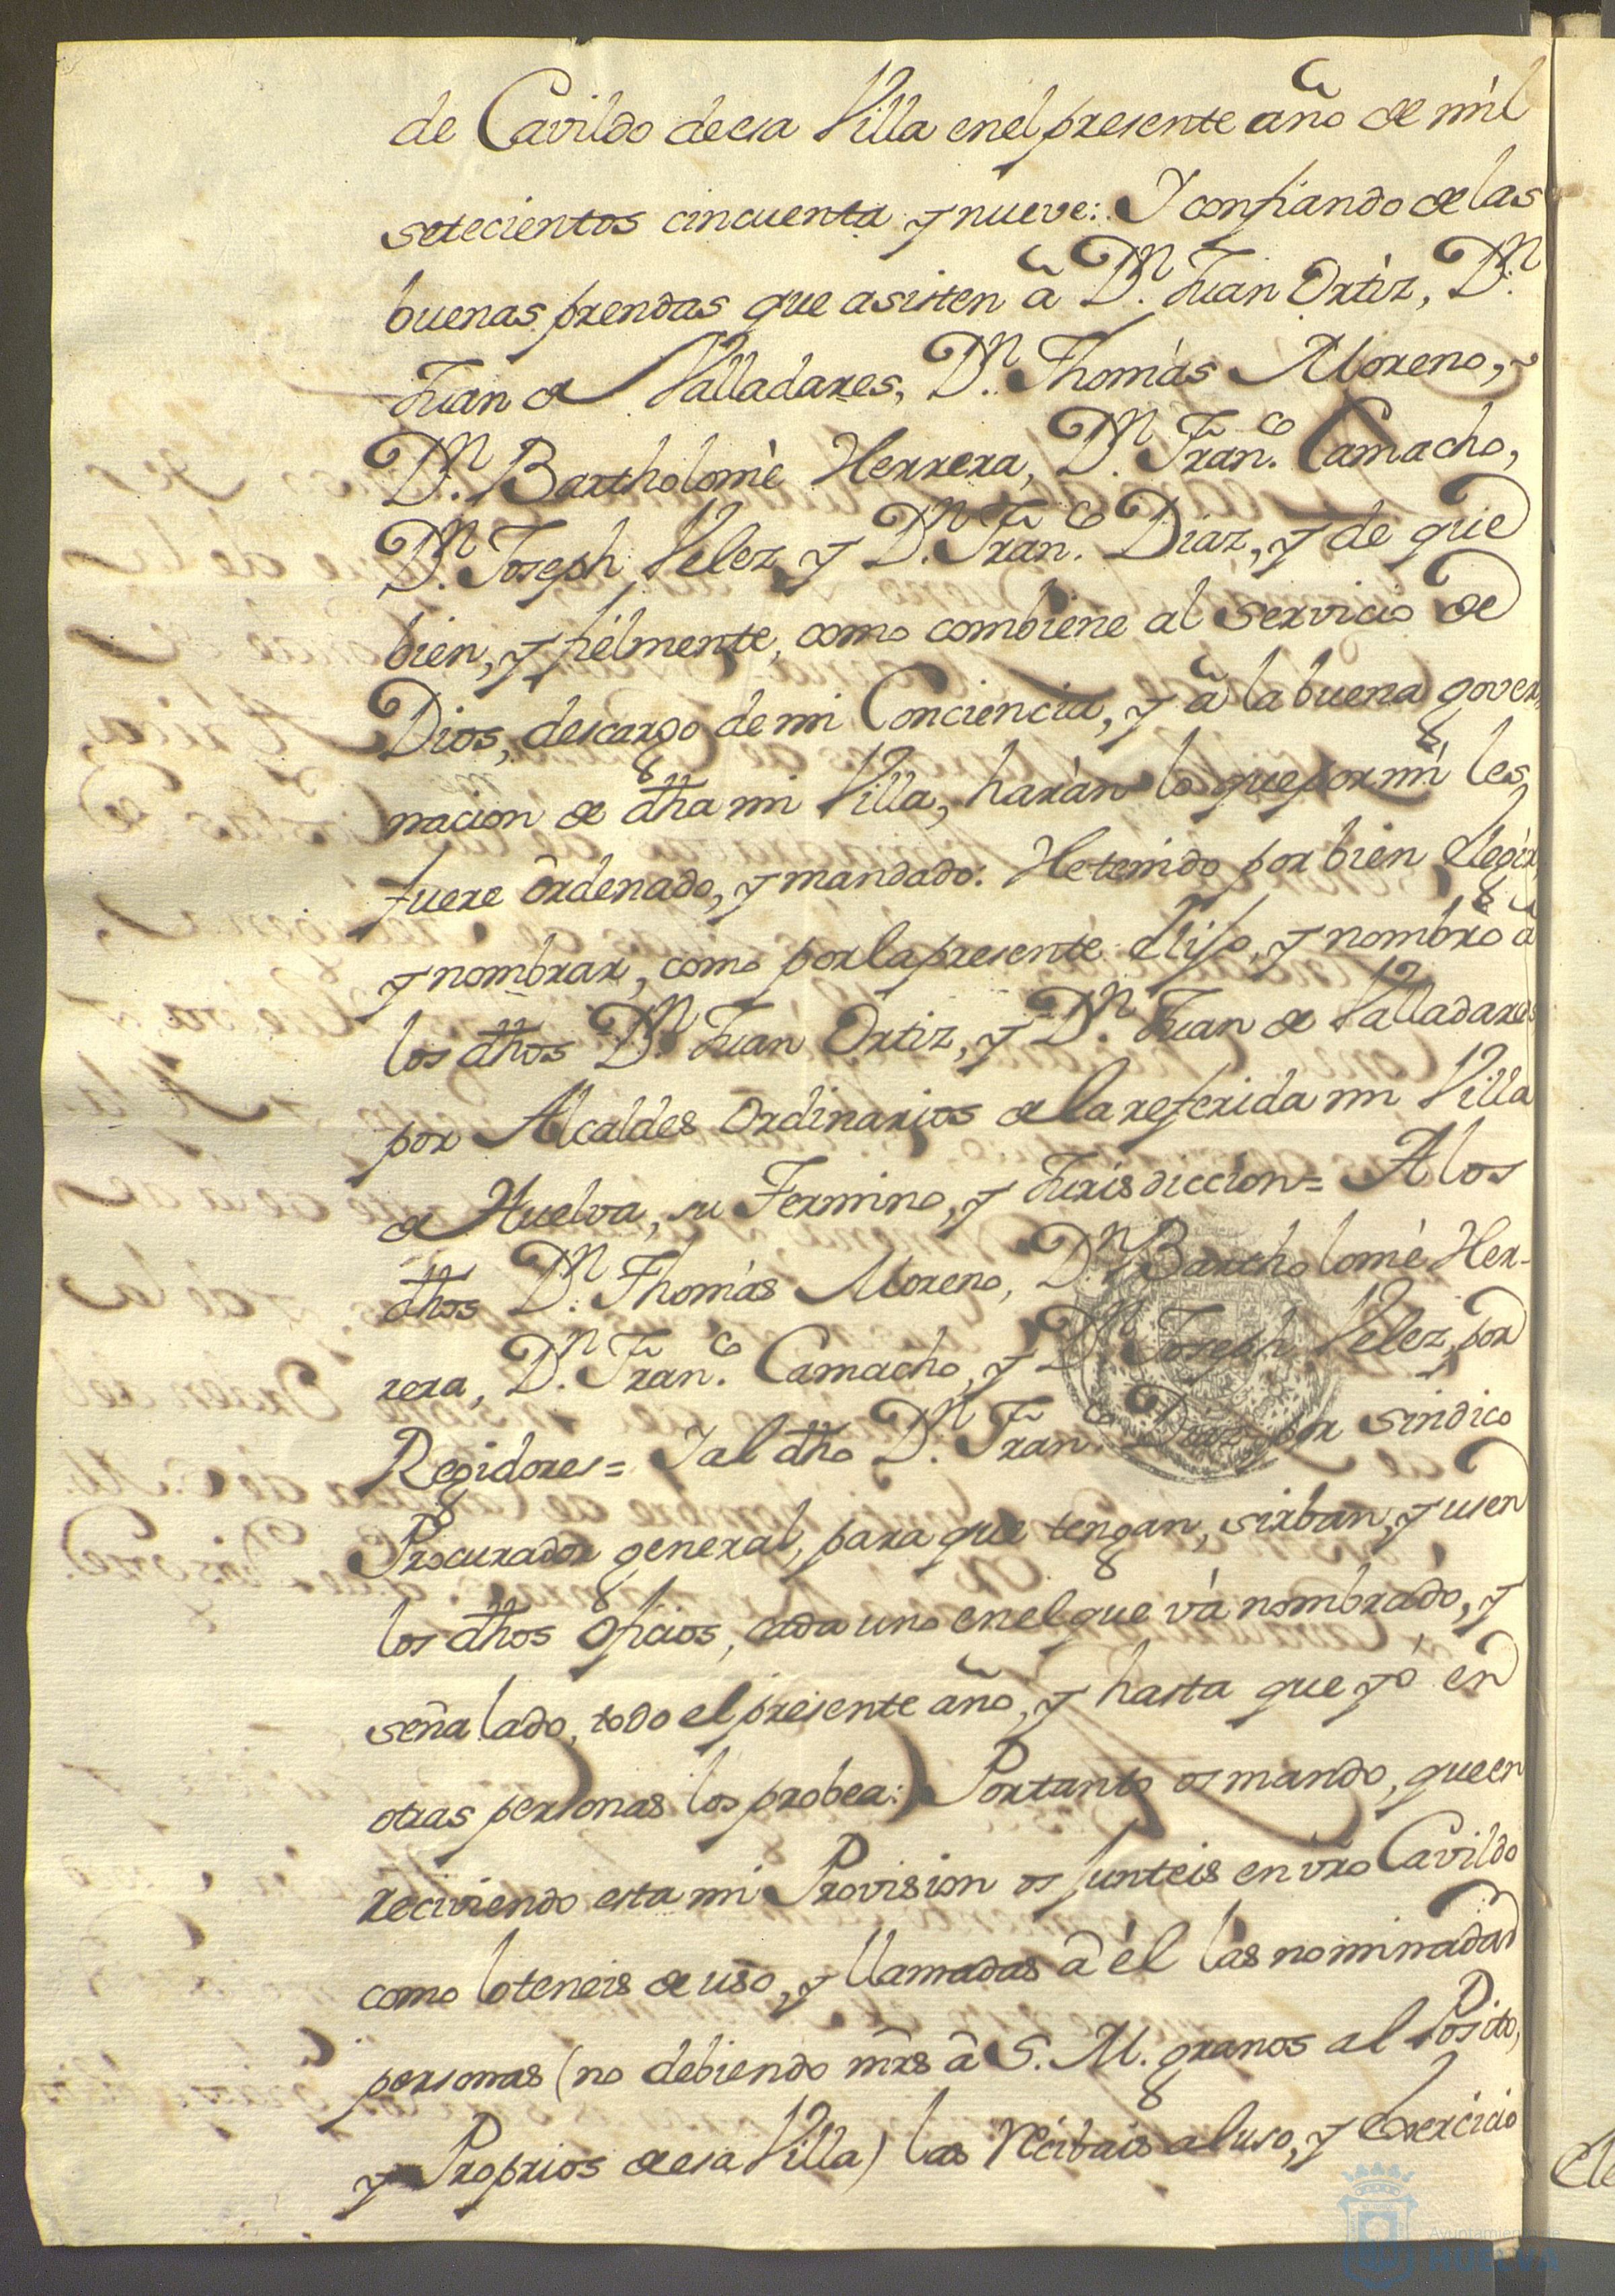 de Cavildo de esa Villa en el presente año de mil
setecientos cincuenta y nueve: Y confiando de las
buenas prendas que asisten â Dn. Juan Ortiz, Dn.
Juan de Valladares, Dn. Thomàs Moreno,
Dn. Bartholomè Herrera, Dn. Franco. Camacho,
Dn. Joseph Velez y Dn. Franco. Diaz, y de que
bien, y fièlmente, como combiene al servicio de
Dios, descargo de mi Conciencia, y â la buena gover
nacion de dha mi Villa, haràn lo que por mi les
fuere ôrdenado, y mandado: He tenido por bien elegir,
y nombrar, como por la presente elijo, y nombro â
los dhos Dn. Juan Ortiz, y Dn. Juan de Valladares
por Alcaldes Ordinarios de la referida mi Villa
de Huelva, su Termino, y Jurisdiccion= A los
dhos Dn. Thomàs Moreno, Dn. Bartholomè Her-
rera, Dn. Franco. Camacho, y Dn. Joseph Velez, por
Regidores= Y al dho Dn. Franco. Diaz, por Sindico
Procurador general, para que tengan, sirban, y usen
los dhos Oficios, cada uno en el que và nombrado, y
señalado, todo el presente año, y hasta que yò en
otras personas los probea: Por tanto os mando, que en
reciviendo esta mi Provision os junteis en vro Cavildo
como lo teneis de uso, y llamadas â èl las nominadas
personas (no debiendo mrs â S. M. granos al Posito,
y Proprios de esa Villa) las recibais al uso, y exercicio
Ele
Ayuntamiento de
HUELVA